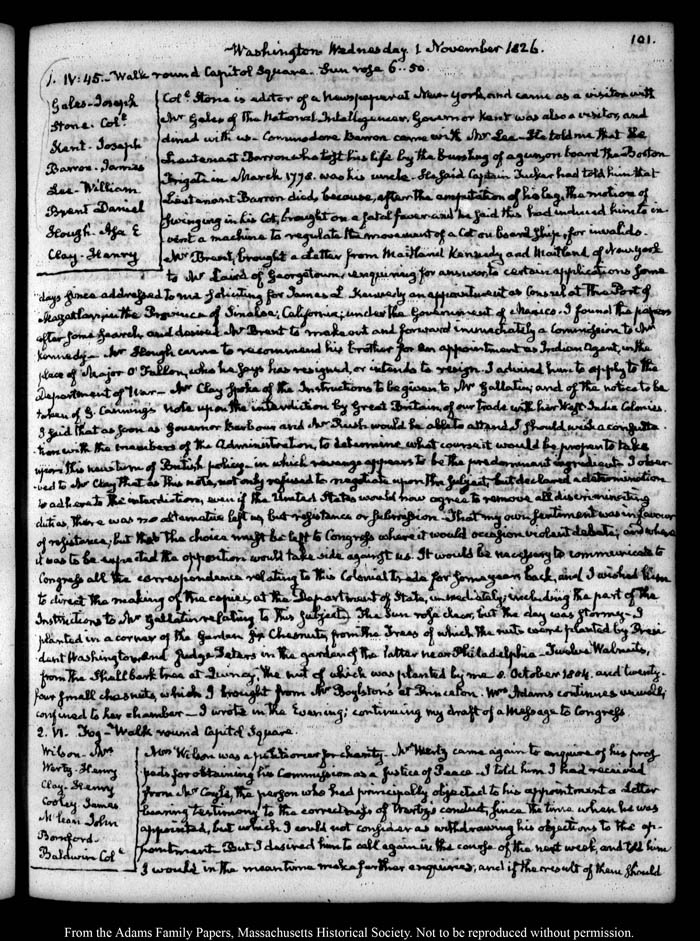 101.
Washington Wednesday 1 November 1826.
1. IV:45. Walk round Capitol Square. Sun rose 6..50.
Gales. Joseph
Stone. Col.ᵉ
Kent. Joseph
Barron. James
Lee. William
Brent Daniel
Hough. Asa E
Clay. Henry
Col.ᵉ Stone is editor of a Newspaper at New-York, and came as a visitor with
Mr Gales of the National Intelligencer. Governor Kent was also a visitor, and
dined with us. Commodore Barron came with Mr Lee. He told me that the
Lieutenant Barron who lost his life by the bursting of a gun, on board the Boston
Frigate in March 1778. was his uncle. He said Captain Tucker had told him that
Lieutenant Barron died, because, after the amputation of his leg, the motion of
swinging in his Cot, brought on a fatal fever and he said this had induced him to in-
vent a machine to regulate the movement of a Cot on board Ship, for invalids.
Mr Brent, brought a letter from Maitland Kennedy and Maitland of New York
to Mr Laird of Georgetown, enquiring for answer to certain applications some
days since addressed to me soliciting for James L. Kennedy an appointment as Consul at the Port of
Mazatlan, in the Province of Sinaloa, California; under the Government of Mexico. I found the papers
after some search, and desired Mr Brent to make out and forward immediately a Commission to Mr
Kennedy. Mr Hough came to recommend his brother for an appointment as Indian Agent, in the
place of Major O'Fallon, who he says has resigned, or intends to resign. I advised him to apply to the
Department of War. Mr Clay spoke of the Instructions to be given to Mr Gallatin; and of the notice to be
taken of G. Canning's note upon the interdiction by Great Britain, of our trade with her West-India Colonies.
I said that as soon as Governor Barbour and Mr Rush would be able to attend, I should wish a consulta-
tion with the members of the Administration, to determine what course it would be proper to take
upon this new turn of British policy. in which revenge appears to be the predominant ingredient. I obser-
ved to Mr Clay that as this note, not only refused to negotiate upon the subject, but declared a determination
to adhere to the interdiction, even if the United States would now agree to remove all discriminating
duties, there was no alternative left us, but resistance or submission. That my own sentiment was in favour
of resistance; but that the choice must be left to Congress where it would occasion violent debate; and where
it was to be expected the opposition would take side against us. It would be necessary to communicate to
Congress all the correspondence relating to this Colonial trade for some years back, and I wished him
to direct the making of the copies, at the Department of State, immediately; including the part of the
Instructions to Mr Gallatin relating to this subject. The Sun rose clear, but the day was stormy. I
planted in a corner of the Garden six Chesnuts, from the Trees of which the nuts were planted by Presi-
dent Washington and Judge Peters in the garden of the latter near Philadelphia. Twelve Walnuts,
from the Shallbark tree at Quincy, the nut of which was planted by me 8. October 1804. and twenty-
four small chesnuts which I brought from Mr Boylston's at Princeton. Mrs Adams continues unwell,
confined to her chamber. I wrote in the Evening; continuing my draft of a Message to Congress.
2. VI. Fog. Walk round Capitol Square.
Wilson. Mrs
Wertz. Henry
Clay. Henry
Cooley. James
McLean John
Bomford.
Baldwin Col.ᵉ
Mrs Wilson was a petitioner for charity. Mr Wertz came again to enquire of his pros-
pects for obtaining his Commission as a Justice of Peace. I told him I had received
from Mr Coyle, the person who had principally objected to his appointment a Letter
bearing testimony to the correctness of Wertz's conduct, since the time when he was
appointed, but which I could not consider as withdrawing his objections to the ap-
pointment. But I desired him to call again in the course of the next week, and told him
I would in the meantime make further enquiries, and if the result of them should
From the Adams Family Papers, Massachusetts Historical Society. Not to be reproduced without permission.